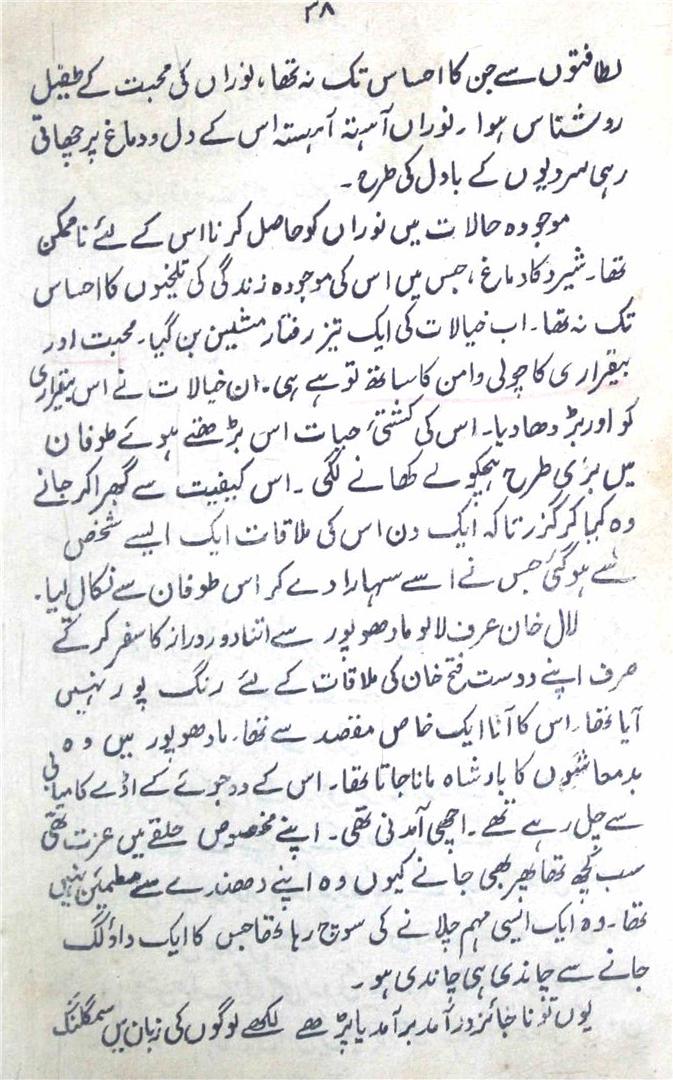 ۳۸
لطافتوں سے جن کا احساس تک نہ تھا، نوراں کی محبت کے طفیل
روشناس ہوا۔ نوراں آہستہ آہستہ اس کے دل و دماغ پر چھاتی
رہی سردیوں کے بادل کی طرح۔
موجودہ حالات میں نوراں کو حاصل کرنا اس کے لئے ناممکن
تھا۔ شیرو کا دماغ، جس میں اس کی موجودہ زندگی کی تلخیوں کا احساس
تک نہ تھا۔ اب خیالات کی ایک تیز رفتار مشین بن گیا۔ محبت اور
بیقراری کا چولی دامن کا ساتھ تو ہے ہی۔ ان خیالات نے اس بیقراری
کو اور بڑھا دیا۔ اس کی کشتیٔ حیات اس بڑھتے ہوئے طوفان
میں بری طرح ہچکولے کھانے لگی۔ اس کیفیت سے گھبرا کر جانے
وہ کیا کر گزرتا کہ ایک دن اس کی ملاقات ایک ایسے شخص
سے ہو گئی جس نے اسے سہارا دے کر اس طوفان سے نکال لیا۔
لال خان عرف لالو مادھوپور سے اتنا دور دراز کا سفر کر کے
صرف اپنے دوست فتح خان کی ملاقات کے لئے رنگ پور نہیں
آیا تھا۔ اس کا آنا ایک خاص مقصد سے تھا۔ مادھوپور میں وہ
بدمعاشوں کا بادشاہ مانا جاتا تھا۔ اس کے دو جوئے کے اڈے کامیابی
سے چل رہے تھے۔ اچھی آمدنی تھی۔ اپنے مخصوص حلقے میں عزت تھی
سب کچھ تھا پھر بھی جانے کیوں وہ اپنے دھندے سے مطمئن نہیں
تھا۔ وہ ایک ایسی مہم چلانے کی سوچ رہا تھا جس کا ایک داؤ لگ
جانے سے چاندی ہی چاندی ہو۔
یوں تو ناجائز درآمد برآمد یا پڑھے لکھے لوگوں کی زبان میں سمگلنگ